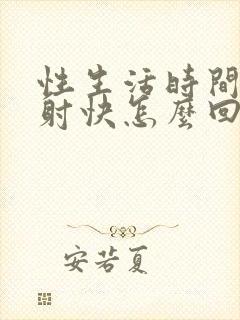 性生活時間
射快怎麼回
安若夏